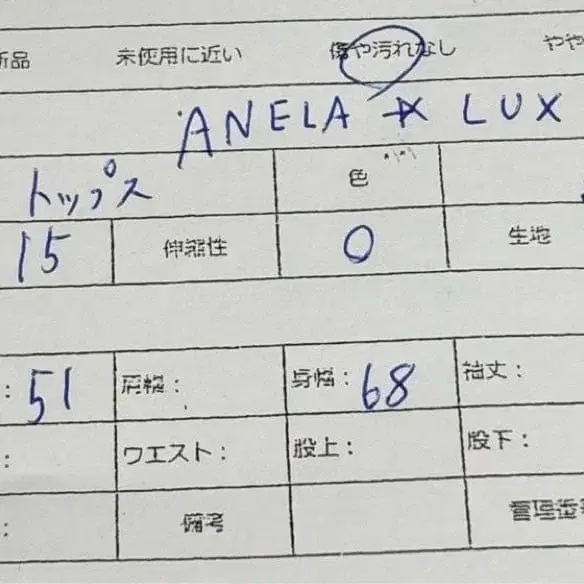 新品 未使用に近い 傷や汚れなし やや
ANELA ☆ LUX
トップス 色
15 伸縮性 0 生地
: 51 肩幅: 身幅: 68 袖丈:
: ウエスト: 股上: 股下:
: 備考 管理番号